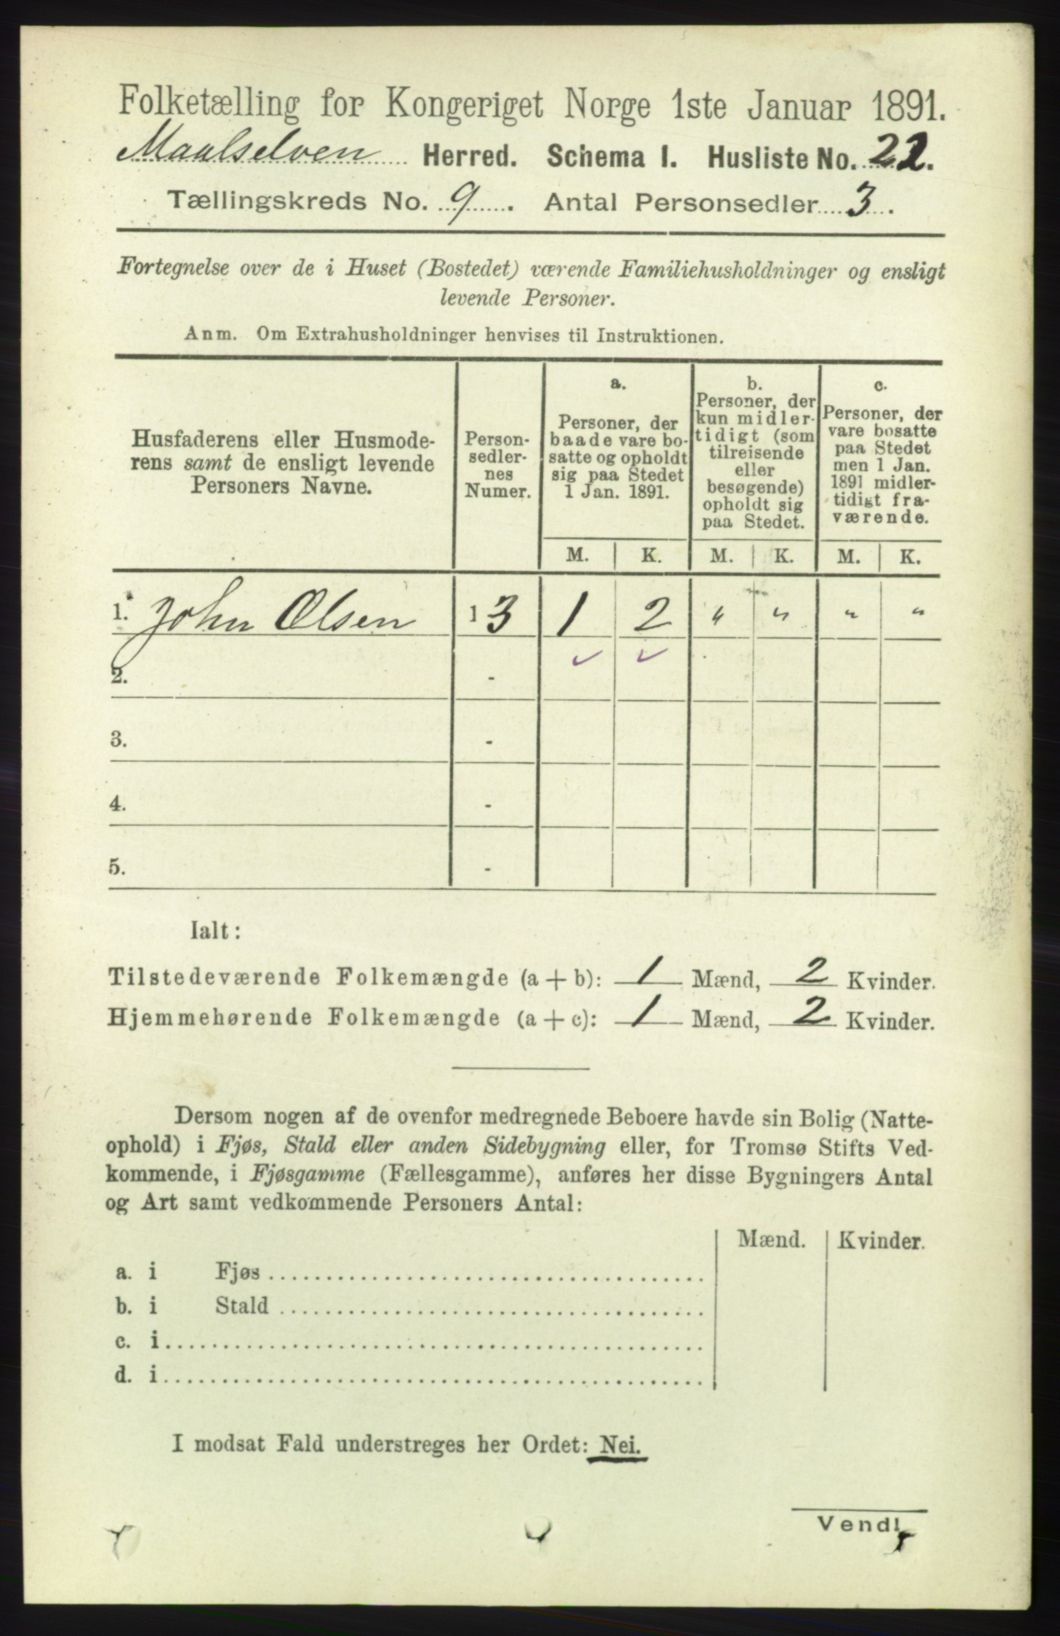 Folketælling for Kongeriget Norge 1ste Januar 1891.
Maalselven Herred. Schema I. Husliste No. 22.
Tællingskreds No. 9. Antal Personsedler 3.
Fortegnelse over de i Huset (Bostedet) værende Familiehusholdninger og ensligt
levende Personer.
Anm. Om Extrahusholdninger henvises til Instruktionen.
Husfaderens eller Husmode-
rens samt de ensligt levende
Personers Navne.
Person-
sedler-
nes
Numer.
a.
Personer, der
baade vare bo-
satte og opholdt
sig paa Stedet
1 Jan. 1891.
b.
Personer, der
kun midler-
tidigt (som
tilreisende
eller
besøgende)
opholdt sig
paa Stedet.
c.
Personer, der
vare bosatte
paa Stedet
men 1 Jan.
1891 midler-
tidigt fra-
værende.
M. K. M. K. M. K.
1. John Olsen 1 3 1 2 " " " "
2. -
3. -
4. -
5. -
Ialt:
Tilstedeværende Folkemængde (a + b): 1 Mænd, 2 Kvinder.
Hjemmehørende Folkemængde (a + c): 1 Mænd, 2 Kvinder.
Dersom nogen af de ovenfor medregnede Beboere havde sin Bolig (Natte-
ophold) i Fjøs, Stald eller anden Sidebygning eller, for Tromsø Stifts Ved-
kommende, i Fjøsgamme (Fællesgamme), anføres her disse Bygningers Antal
og Art samt vedkommende Personers Antal:
Mænd. Kvinder.
a. i Fjøs
b. i Stald
c. i
d. i
I modsat Fald understreges her Ordet: Nei.
Vend!